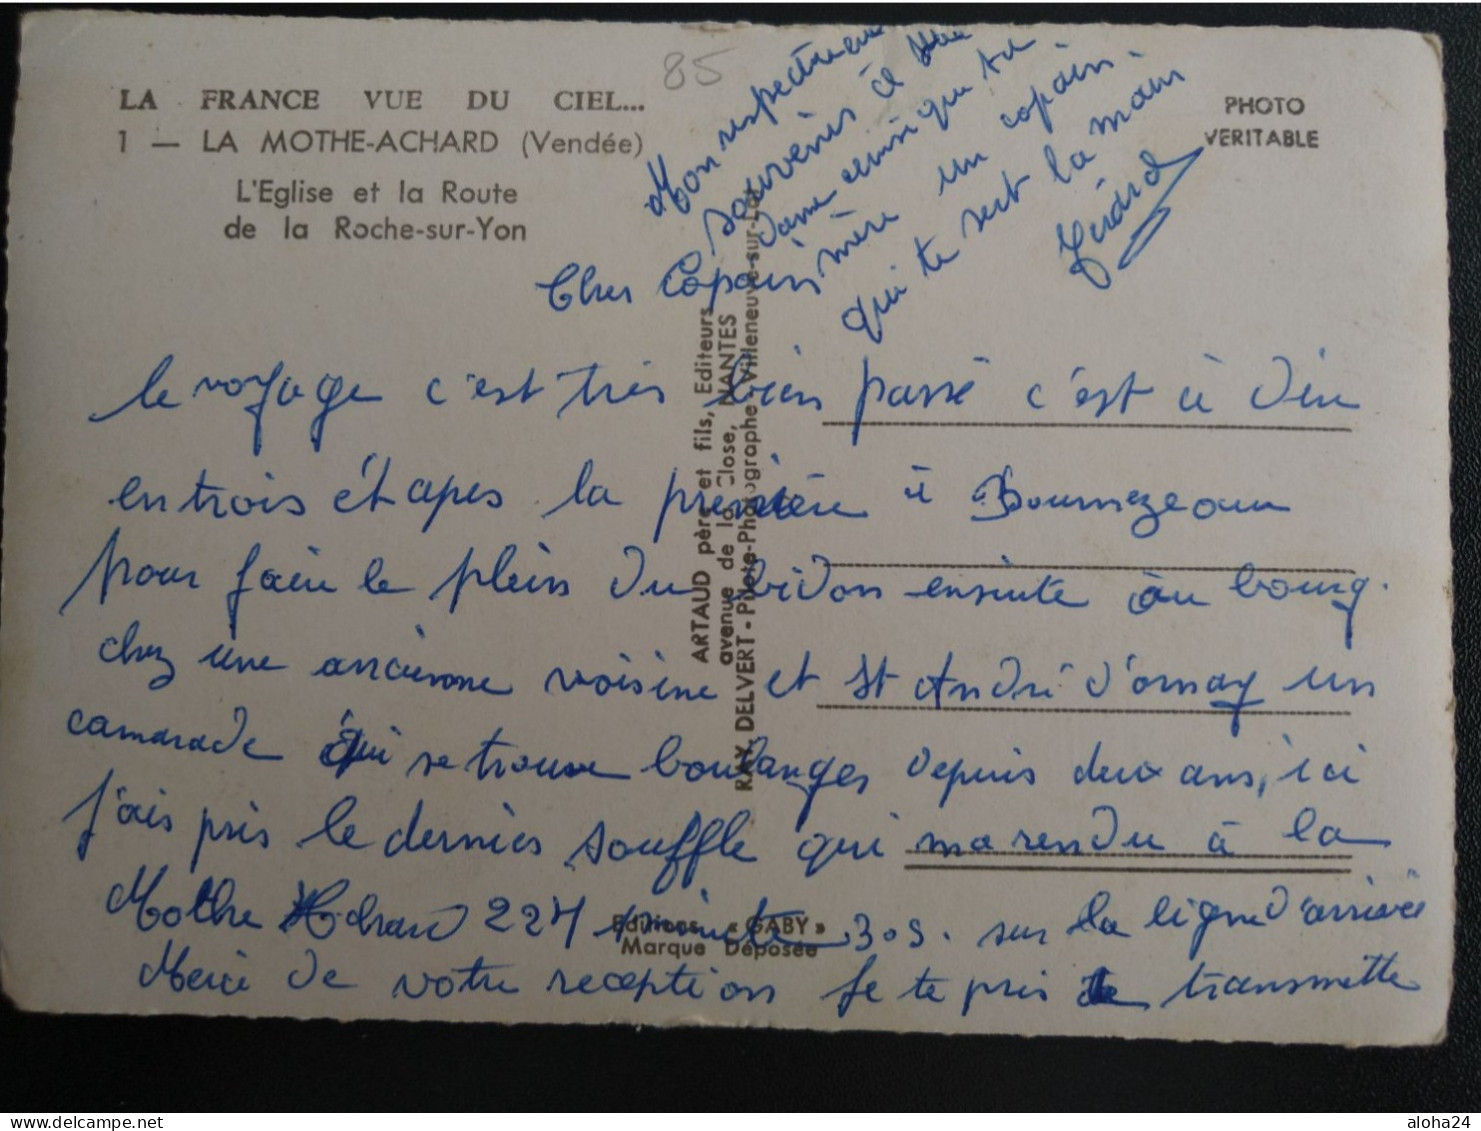 85
LA FRANCE VUE DU CIEL...
1 — LA MOTHE-ACHARD (Vendée)
L'Eglise et la Route
de la Roche-sur-Yon
PHOTO
VERITABLE
Cher Copain
le voyage c'est très bien passé c'est à dire
en trois étapes la première à Bournezeau
pour faire le plein du bidon ensuite au bourg.
chez une ancienne voisine et St André d'ornay un
camarade qui se trouve boulanger depuis deux ans, ici
j'ais pris le dernier souffle qui ma rendu à la
Mothe Achard 22H minute 30s. sur la ligne d'arrivée
Merci de votre reception Je te pris de transmettre
Mon respectueux
souvenirs à
dame ainsi que ta
mère un copain.
qui te sert la main
Gérard
ARTAUD père et fils, Editeurs
avenue de la Close, NANTES
RAY. DELVERT - Pilote-Photographe - Villeneuve-sur-Lot
Editions « GABY »
Marque Déposée
aloha24